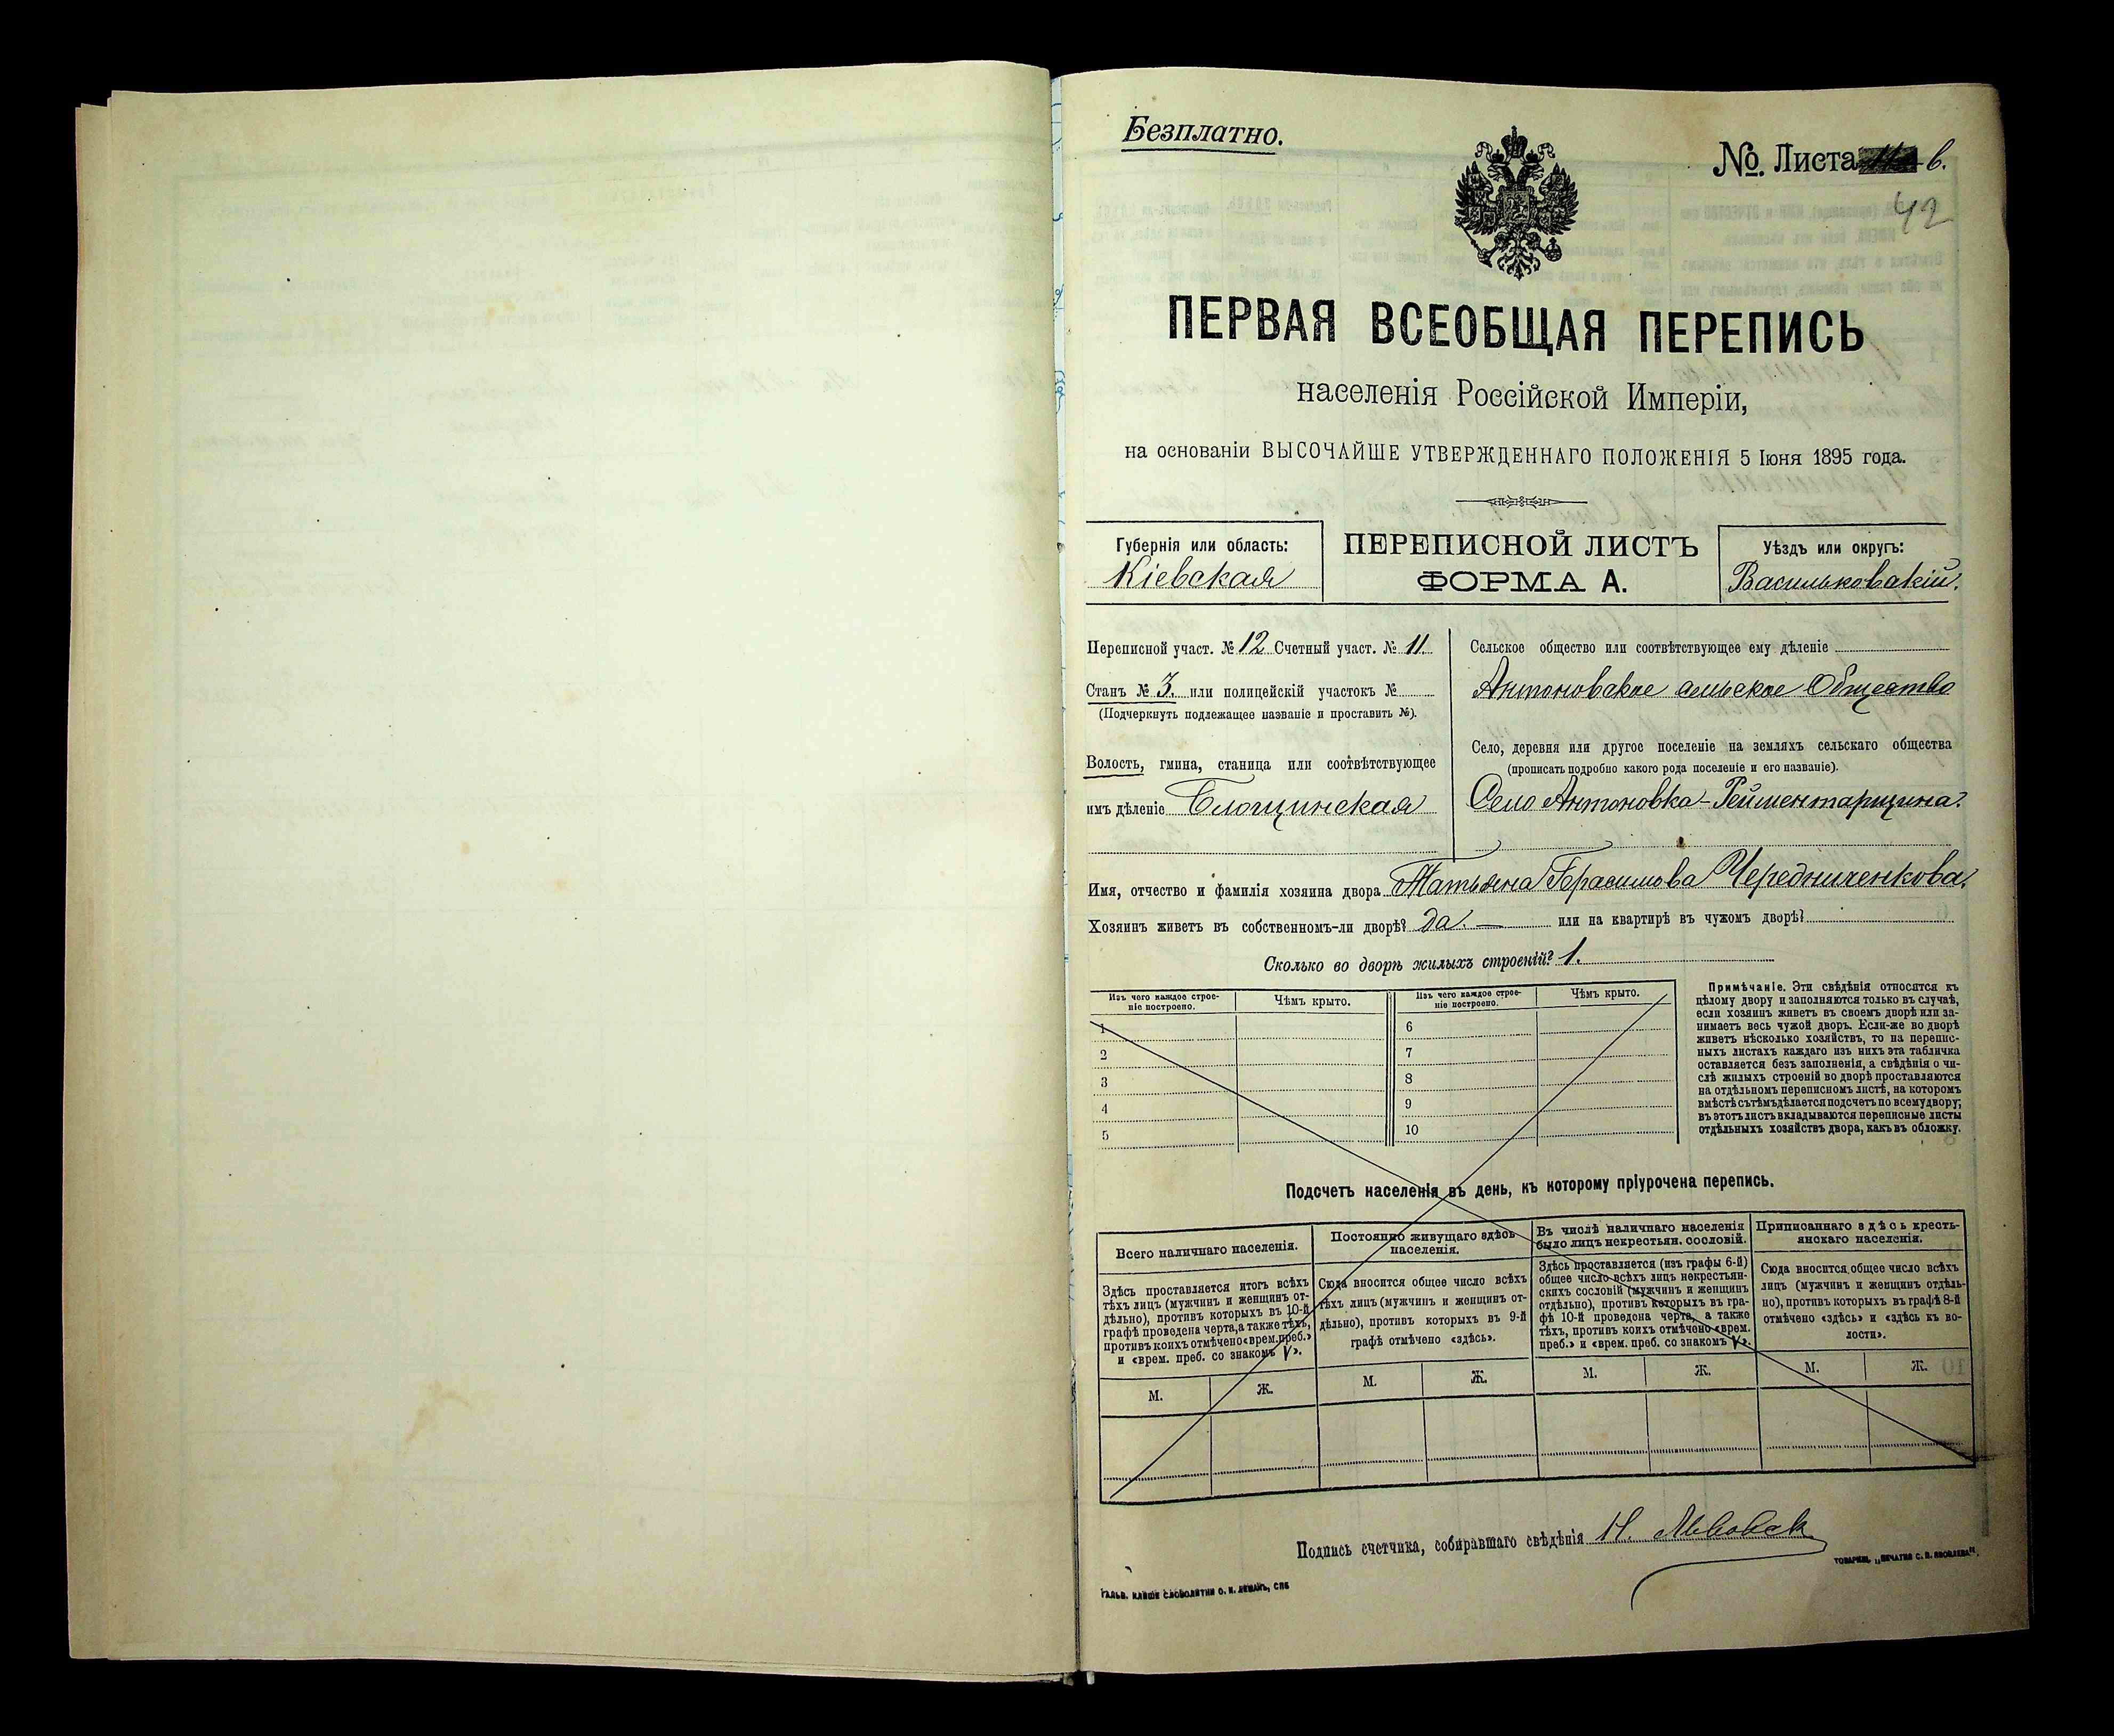 Безплатно.
№. Листа в.
42
ПЕРВАЯ ВСЕОБЩАЯ ПЕРЕПИСЬ
населенія Россійской Имперіи,
на основаніи ВЫСОЧАЙШЕ УТВЕРЖДЕННАГО ПОЛОЖЕНІЯ 5 Іюня 1895 года.
Губернія или область:
Кіевская
ПЕРЕПИСНОЙ ЛИСТЪ
ФОРМА А.
Уѣздъ или округъ:
Васильковскій.
Переписной участ. № 12 Счетный участ. № 11.
Станъ № 3. или полицейскій участокъ №
(Подчеркнуть подлежащее названіе и проставить №).
Волость, гмина, станица или соотвѣтствующее
имъ дѣленіе Блощинская
Сельское общество или соотвѣтствующее ему дѣленіе
Антоновское сельское Общество
Село, деревня или другое поселеніе на земляхъ сельскаго общества
(прописать подробно какого рода поселеніе и его названіе).
Село Антоновка-Рейментарщина.
Имя, отчество и фамилія хозяина двора Татьяна Герасимова Чередниченкова.
Хозяинъ живетъ въ собственномъ-ли дворѣ? да. — или на квартирѣ въ чужомъ дворѣ?
Сколько во дворѣ жилыхъ строеній? 1.
Изъ чего каждое строе-
ніе построено.
Чѣмъ крыто.
Изъ чего каждое строе-
ніе построено.
Чѣмъ крыто.
1
2
3
4
5
6
7
8
9
10
Примѣчаніе. Эти свѣдѣнія относятся къ
цѣлому двору и заполняются только въ случаѣ,
если хозяинъ живетъ въ своемъ дворѣ или за-
нимаетъ весь чужой дворъ. Если-же во дворѣ
живетъ нѣсколько хозяйствъ, то на перепис-
ныхъ листахъ каждаго изъ нихъ эта табличка
оставляется безъ заполненія, а свѣдѣнія о чи-
слѣ жилыхъ строеній во дворѣ проставляются
на отдѣльномъ переписномъ листѣ, на которомъ
вмѣстѣ съ тѣмъ дѣлается подсчетъ по всему двору;
въ этотъ листъ вкладываются переписные листы
отдѣльныхъ хозяйствъ двора, какъ въ обложку.
Подсчетъ населенія въ день, къ которому пріурочена перепись.
Всего наличнаго населенія.
Здѣсь проставляется итогъ всѣхъ
тѣхъ лицъ (мужчинъ и женщинъ от-
дѣльно), противъ которыхъ въ 10-й
графѣ проведена черта, а также тѣхъ,
противъ коихъ отмѣчено «врем. преб.»
и «врем. преб. со знакомъ V».
М. Ж.
Постоянно живущаго здѣсь
населенія.
Сюда вносится общее число всѣхъ
тѣхъ лицъ (мужчинъ и женщинъ от-
дѣльно), противъ которыхъ въ 9-й
графѣ отмѣчено «здѣсь».
М. Ж.
Въ числѣ наличнаго населенія
было лицъ некрестьян. сословій.
Здѣсь проставляется (изъ графы 6-й)
общее число всѣхъ лицъ некрестьян-
скихъ сословій (мужчинъ и женщинъ
отдѣльно), противъ которыхъ въ гра-
фѣ 10-й проведена черта, а также
тѣхъ, противъ коихъ отмѣчено «врем.
преб.» и «врем. преб. со знакомъ V».
М. Ж.
Приписаннаго здѣсь кресть-
янскаго населенія.
Сюда вносится общее число всѣхъ
лицъ (мужчинъ и женщинъ отдѣль-
но), противъ которыхъ въ графѣ 8-й
отмѣчено «здѣсь» и «здѣсь къ во-
лости».
М. Ж.
Подпись счетчика, собиравшаго свѣдѣнія Н. Львовск
ГАЛЬВ. КЛИШЕ СЛОВОЛИТНИ О. И. ЛЕМАНЪ, СПБ
ТОВАРИЩ. „ПЕЧАТНЯ С. П. ЯКОВЛЕВА".